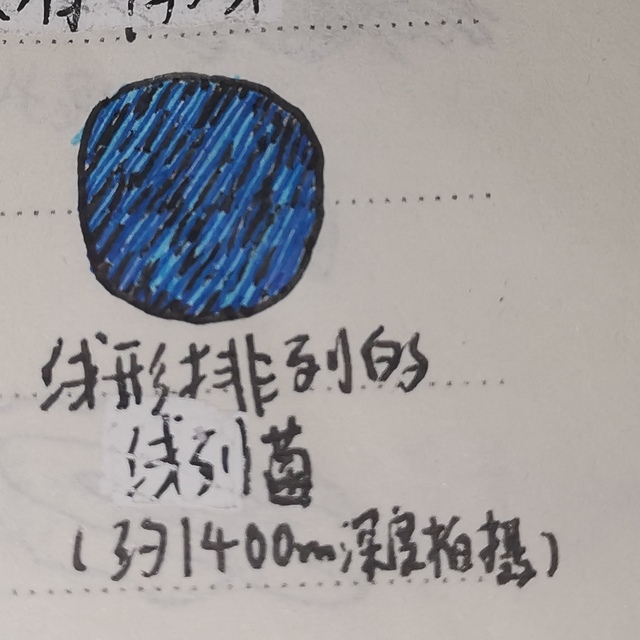 线形排列的
线列菌
(约1400m深度拍摄)